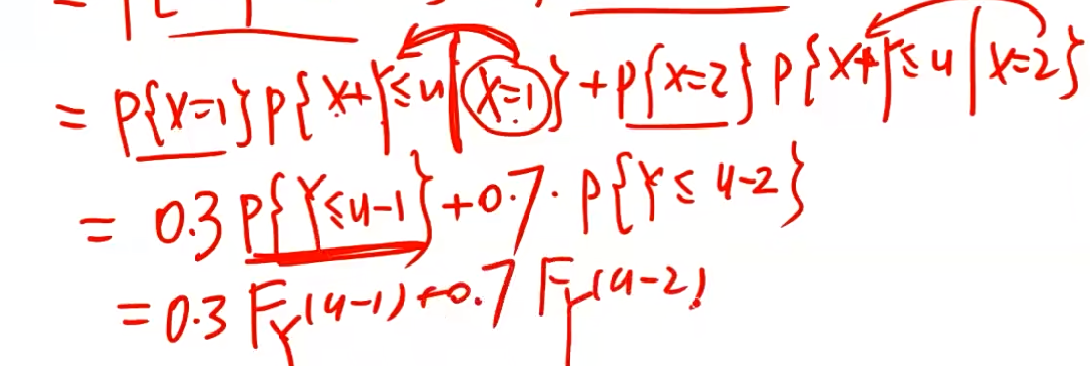 = P{X=1}P{X+Y≤u|X=1}+P{X=2}P{X+Y≤u|X=2}
= 0.3P{Y≤u-1}+0.7·P{Y≤u-2}
=0.3F_Y(u-1)+0.7F_Y(u-2)